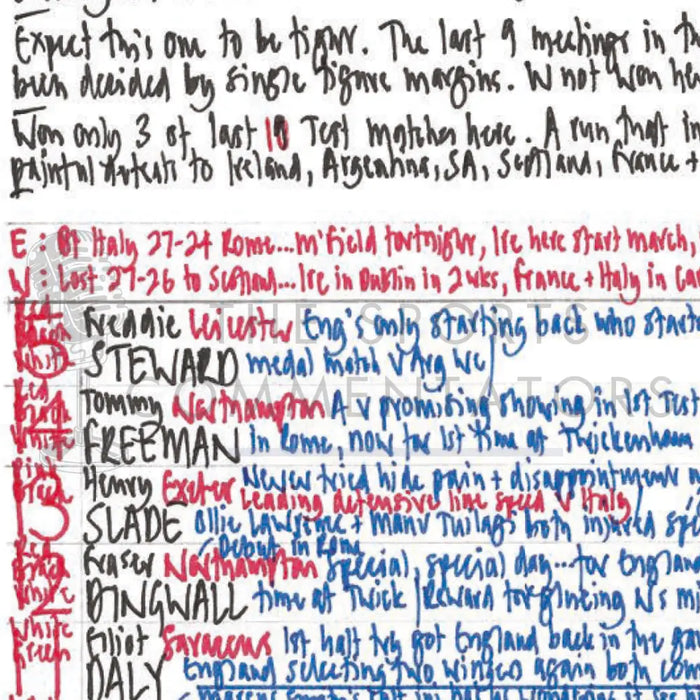 Expect this one to be tight. The last 9 meetings in th
been decided by single figure margins. W not won he
Won only 3 of last 10 Test matches here. A run that in
painful defeats to Ireland, Argentina, SA, Scotland, France +
E: Bt Italy 27-24 Rome...M'field fortnight, Ire here start march,
W: Lost 27-26 to Scotland...Ire in Dublin in 2wks, France + Italy in Ca
THE SPORTS
COMMENTATORS
15 Freddie Leicester Eng's only starting back who starte
STEWARD medal match v Arg WC
14 Tommy Northampton A v promising showing in 1st Test
FREEMAN in Rome, now for 1st time at Twickenham
13 Henry Exeter Never tried hide pain + disappointment
Leading defensive line speed v Italy
SLADE Ollie Lawrence + Manu Tuilagi both injured
Debut in Rome
12 Fraser Northampton Special, special day...for England
DINGWALL time at Twick | Reward for
11 Elliot Saracens 1st half try got England back in the ga
DALY England selecting two wingers again both